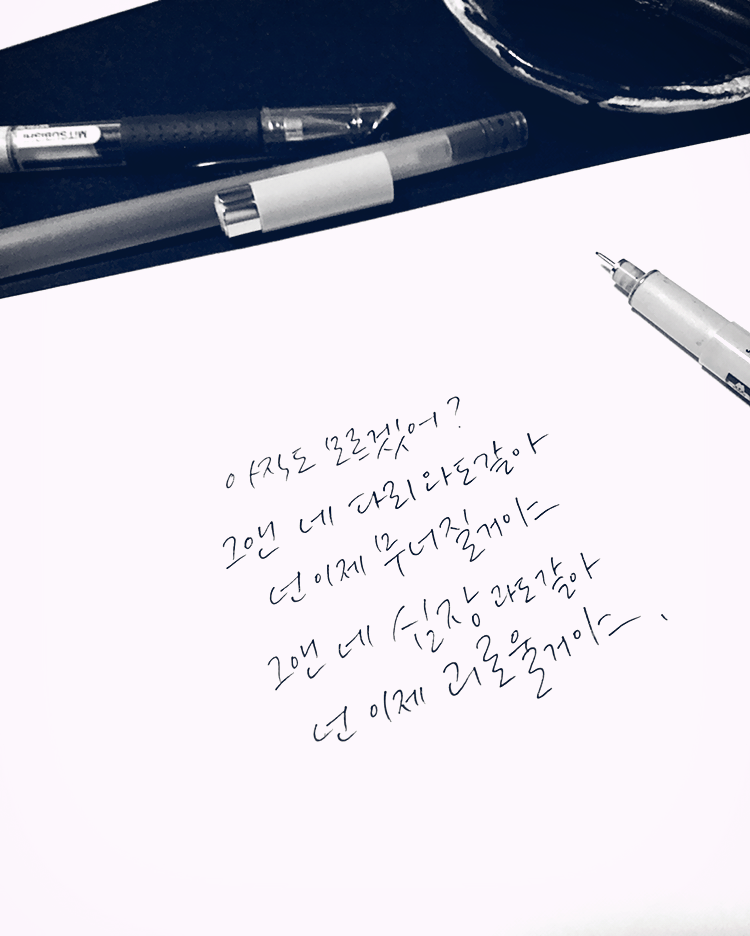 MITSUBISHI
아직도 모르겠어?
그앤 네 다리와도같아
넌 이제 무너질거야
그앤 네 심장과도같아
넌 이제 괴로울거야.